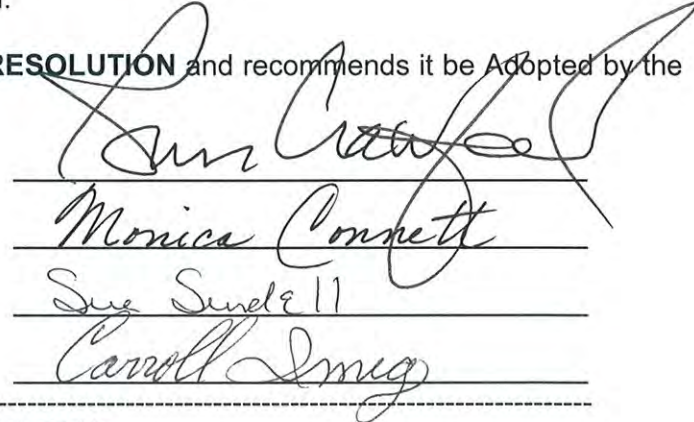 RESOLUTION and recommends it be Adopted by the
Crawford
Monica Connett
Sue Sundell
Carroll Imig